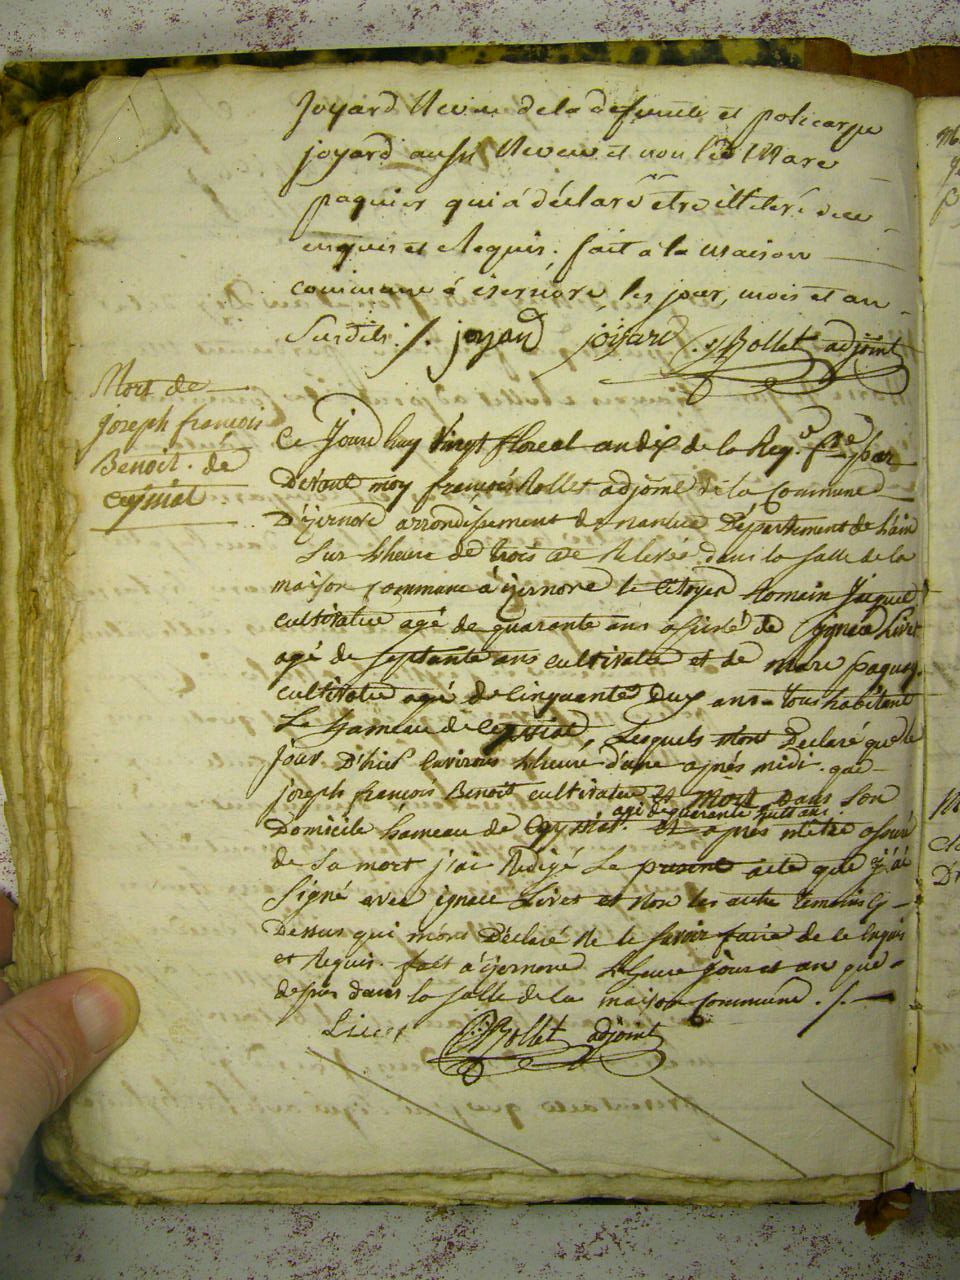 joyard Neveu de la defunte et policarpe
joyard aussi Neveu et non led. Marc
paquier qui a déclaré etre illiteré de ce
enquis et Requis. fait a la Maison
commune a isernore les jour, mois et an
Susdits ./. joyard joyard Rollet adjoint
Mort de
joseph françois
Benoit. de
Ceyssiat
Ce Jourdhuy Vingt floreal an dix de la Rep. fse par
Devant moy françois Rollet adjoint de la Commune
D'izernore arrondissement de nantua Département de L'ain
Sur Lheure de trois de Relevée dans la salle de la
maison commune a izernore le Citoyen Romain Jacquet
cultivateur agé de quarante ans assisté de Ignace Livet
agé de septante ans cultivateur et de marc paquier
cultivateur agé de Cinquante Deux ans tous habitant
Le hameau de Ceyssiat, Lesquels m'ont Declaré que le
jour D'hier Environs Lheure d'une après midi. que
joseph françois Benoit cultivateur est Mort Dans Son
agé de quarante huit ans
Domicile hameau de Ceyssiat. et après m'etre assuré
de Sa mort j'ai Redigé Le present acte que j'ai
Signé avec ignace Livet et Non les autre temoins Cy
Dessus qui m'ont Déclaré Ne le Savoir faire de ce Enquis
et Requis. fait a izernore Lheure jour et an que
dessus dans la Salle de la maison Commune ./.
Livet Rollet adjoint